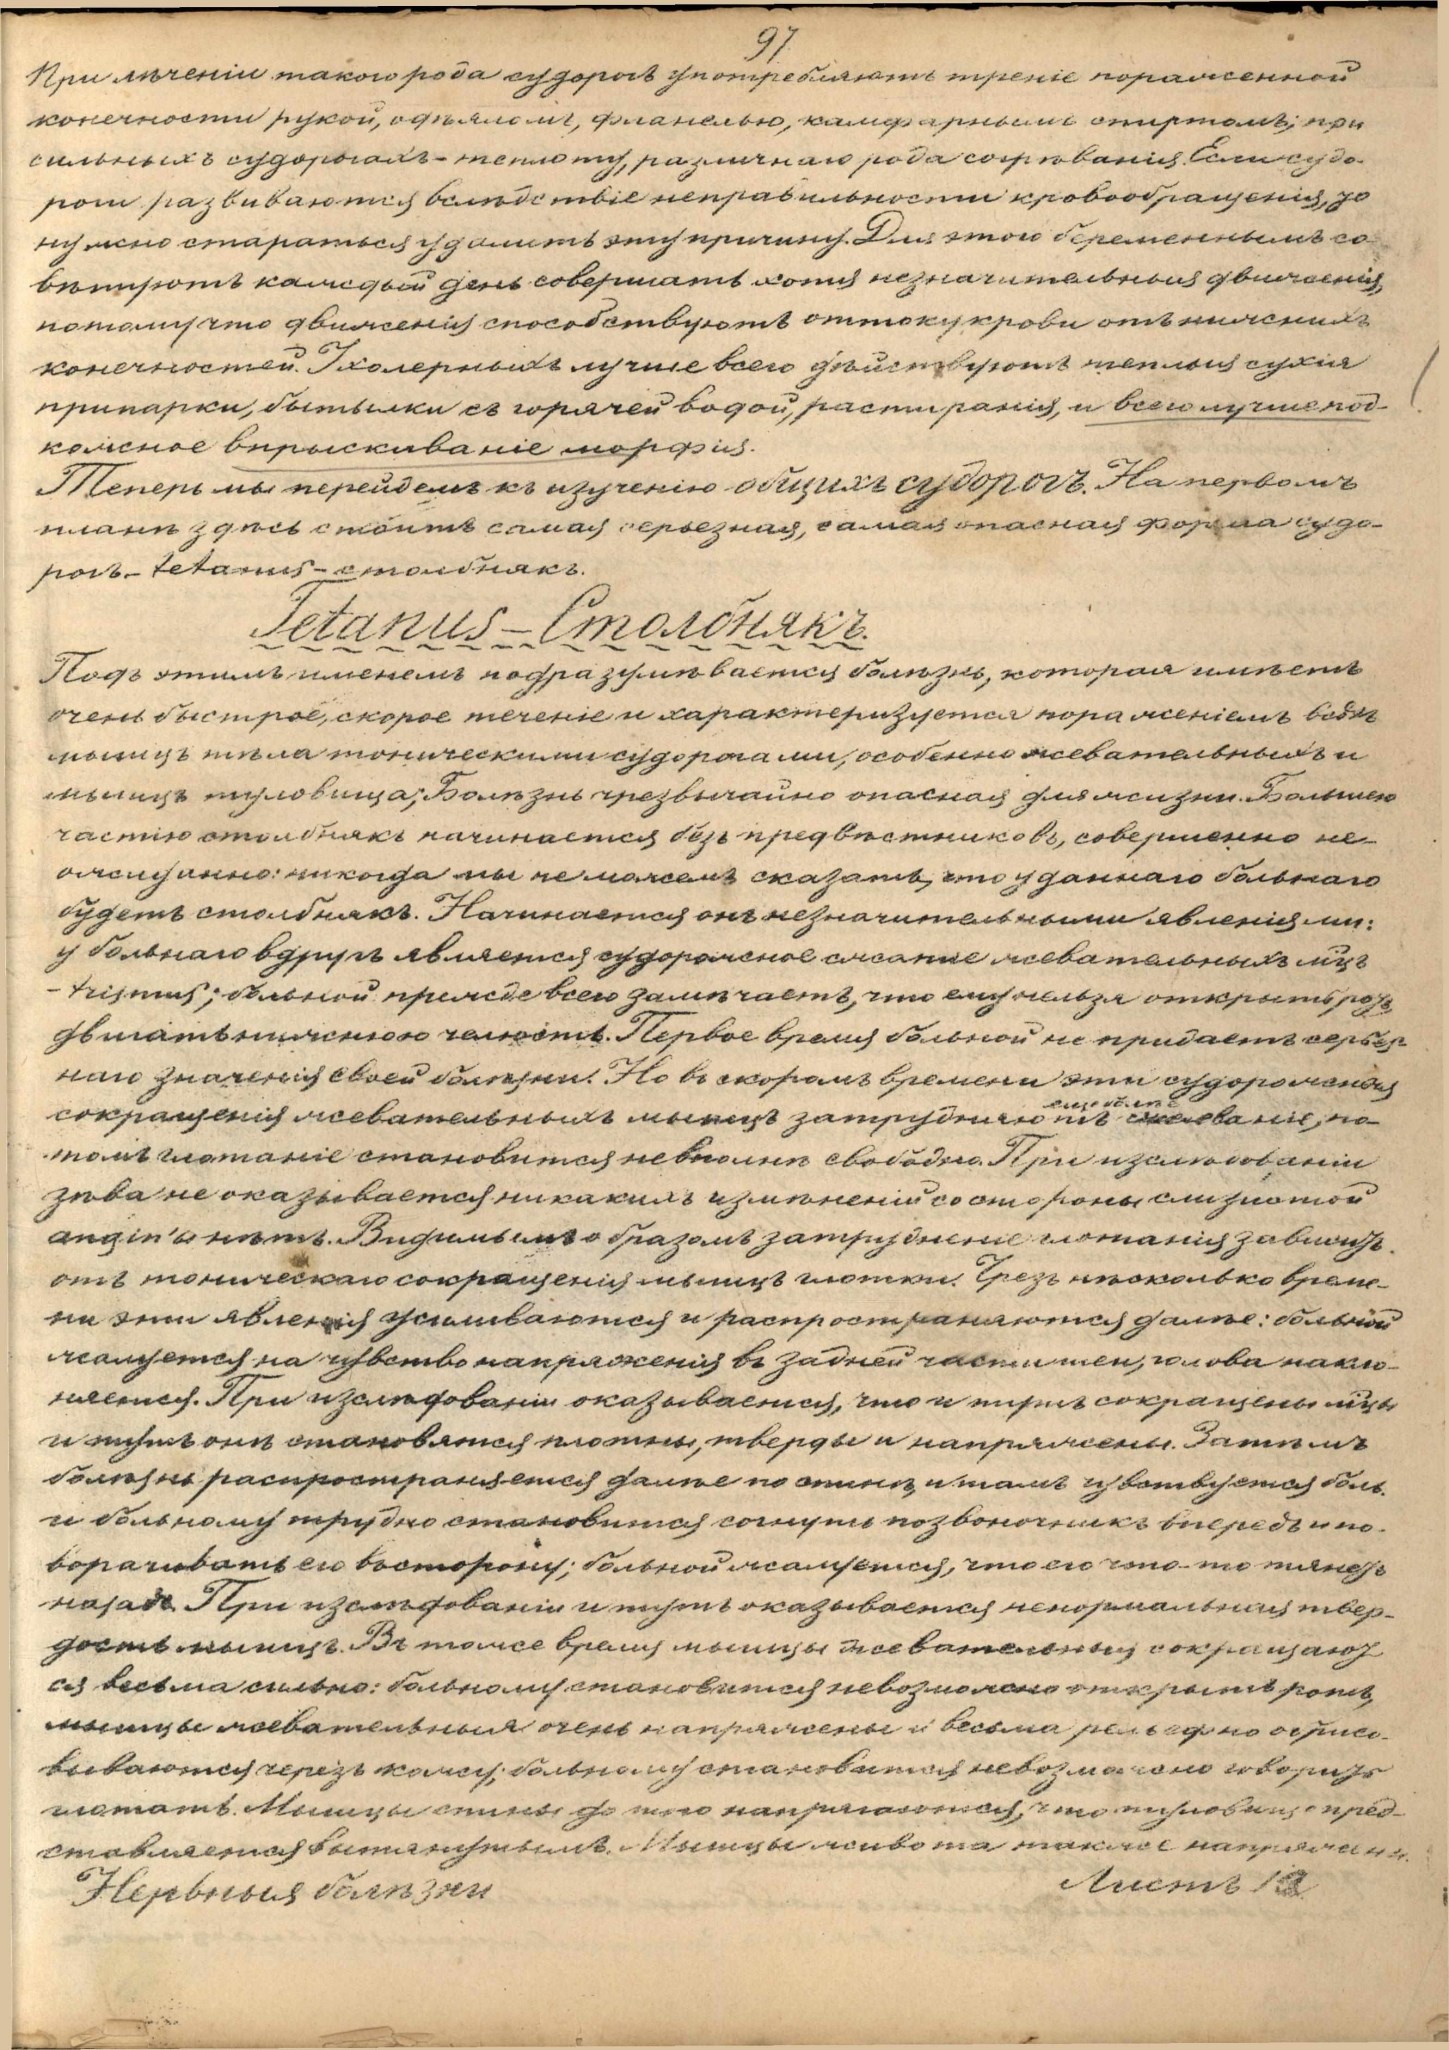 97
При лѣченіи такого рода судорогъ употребляютъ треніе пораженной
конечности рукой, одѣяломъ, фланелью, камфарнымъ спиртомъ; при
сильныхъ судорогахъ - теплоту, различнаго рода согрѣванія. Если судо-
роги развиваются вслѣдствіе неправильности кровообращенія, то
нужно стараться удалить эту причину. Для этого беременнымъ со-
вѣтуютъ каждый день совершать хотя незначительныя движенія,
потому что движенія способствуютъ оттоку крови отъ нижнихъ
конечностей. У холерныхъ лучше всего дѣйствуютъ теплыя сухія
припарки, бытылки съ горячей водой, растиранія, и всего лучше под-
кожное впрыскиваніе морфія.
Теперь мы перейдемъ къ изученію общихъ судорогъ. На первомъ
планѣ здѣсь стоитъ самая серьезная, самая опасная форма судо-
рогъ - tetanus - столбнякъ.
Tetanus - Столбнякъ.
Подъ этимъ именемъ подразумѣвается болѣзнь, которая имѣетъ
очень быстрое, скорое теченіе и характеризуется пораженіемъ всѣхъ
мышцъ тѣла тоническими судорогами, особенно жевательныхъ и
мышцъ туловища; Болѣзнь чрезвычайно опасная для жизни. Большею
частію столбнякъ начинается безъ предвѣстниковъ, совершенно не-
ожиданно: никогда мы не можемъ сказать, что у даннаго больнаго
будетъ столбнякъ. Начинается онъ незначительными явленіями:
у больнаго вдругъ является судорожное сжатіе жевательныхъ мцъ
- trismus; больной прежде всего замѣчаетъ, что ему нельзя открыть ротъ,
двигать нижнюю челюсть. Первое время больной не придаетъ серьез-
наго значенія своей болѣзни. Но въ скоромъ времени эти судорожныя
сокращенія жевательныхъ мышцъ затрудняютъ жеваніе, по-
томъ глотаніе становится невполнѣ свободно. При изслѣдованіи
зѣва не оказывается никакихъ измѣненій со стороны слизистой
angin'ы нѣтъ. Видимымъ образомъ затрудненіе глотанія зависитъ
отъ тоническаго сокращенія мышцъ глотки. Чрезъ нѣсколько време-
ни эти явленія усиливаются и распространяются далѣе: больной
жалуется на чувство напряженія въ задней части шеи, голова накло-
няется. При изслѣдованіи оказывается, что и тутъ сокращены мцы
и тутъ онѣ становятся плотны, тверды и напряжены. Затѣмъ
болѣзнь распространяется далѣе по спинѣ, и тамъ чувствуется боль
и больному трудно становится согнуть позвоночникъ впередъ и по-
ворачивать его въ сторону; больной жалуется, что его что-то тянетъ
назадъ. При изслѣдованіи и тутъ оказывается ненормальная твер-
дость мышцъ. Въ тоже время мышцы жевательныя сокращают
ся весьма сильно: больному становится невозможно открыть ротъ,
мышцы жевательныя очень напряжены и весьма рельефно обрисо-
вываются черезъ кожу; больному становится невозможно говорить
глотать. Мышцы спины до того напрягаются, что туловище пред-
ставляется вытянутымъ. Мышцы живота также напряжены.
Нервныя болѣзни
Листъ 13